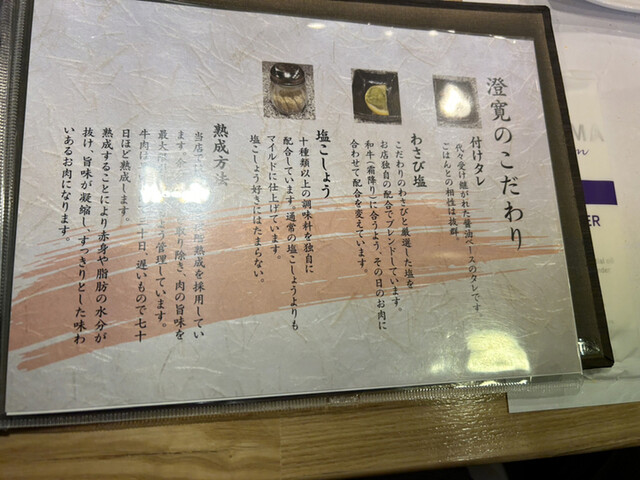 澄寛のこだわり
付けタレ
代々受け継がれた醤油ベースのタレです。
ごはんとの相性は抜群。
わさび塩
こだわりのわさびと厳選した塩を
お店独自の配合でブレンドしています。
和牛(霜降り)に合うよう、その日のお肉に
合わせて配合を変えています。
塩こしょう
十種類以上の調味料を独自に
配合しています。通常の塩こしょうよりも
マイルドに仕上げています。
塩こしょう好きにはたまらない。
熟成方法
当店で 熟成を採用してい
ます。余 取り除き、肉の旨味を
最大限 よう管理しています。
牛肉は 三十日、遅いもので七十
日ほど熟成します。
熟成することにより赤身や脂肪の水分が
抜け、旨味が凝縮し、すっきりとした味わ
いあるお肉になります。